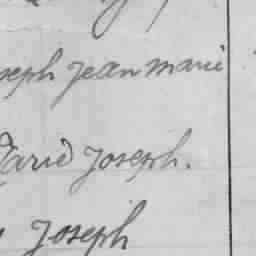 seph jean marie
David Joseph.
Joseph